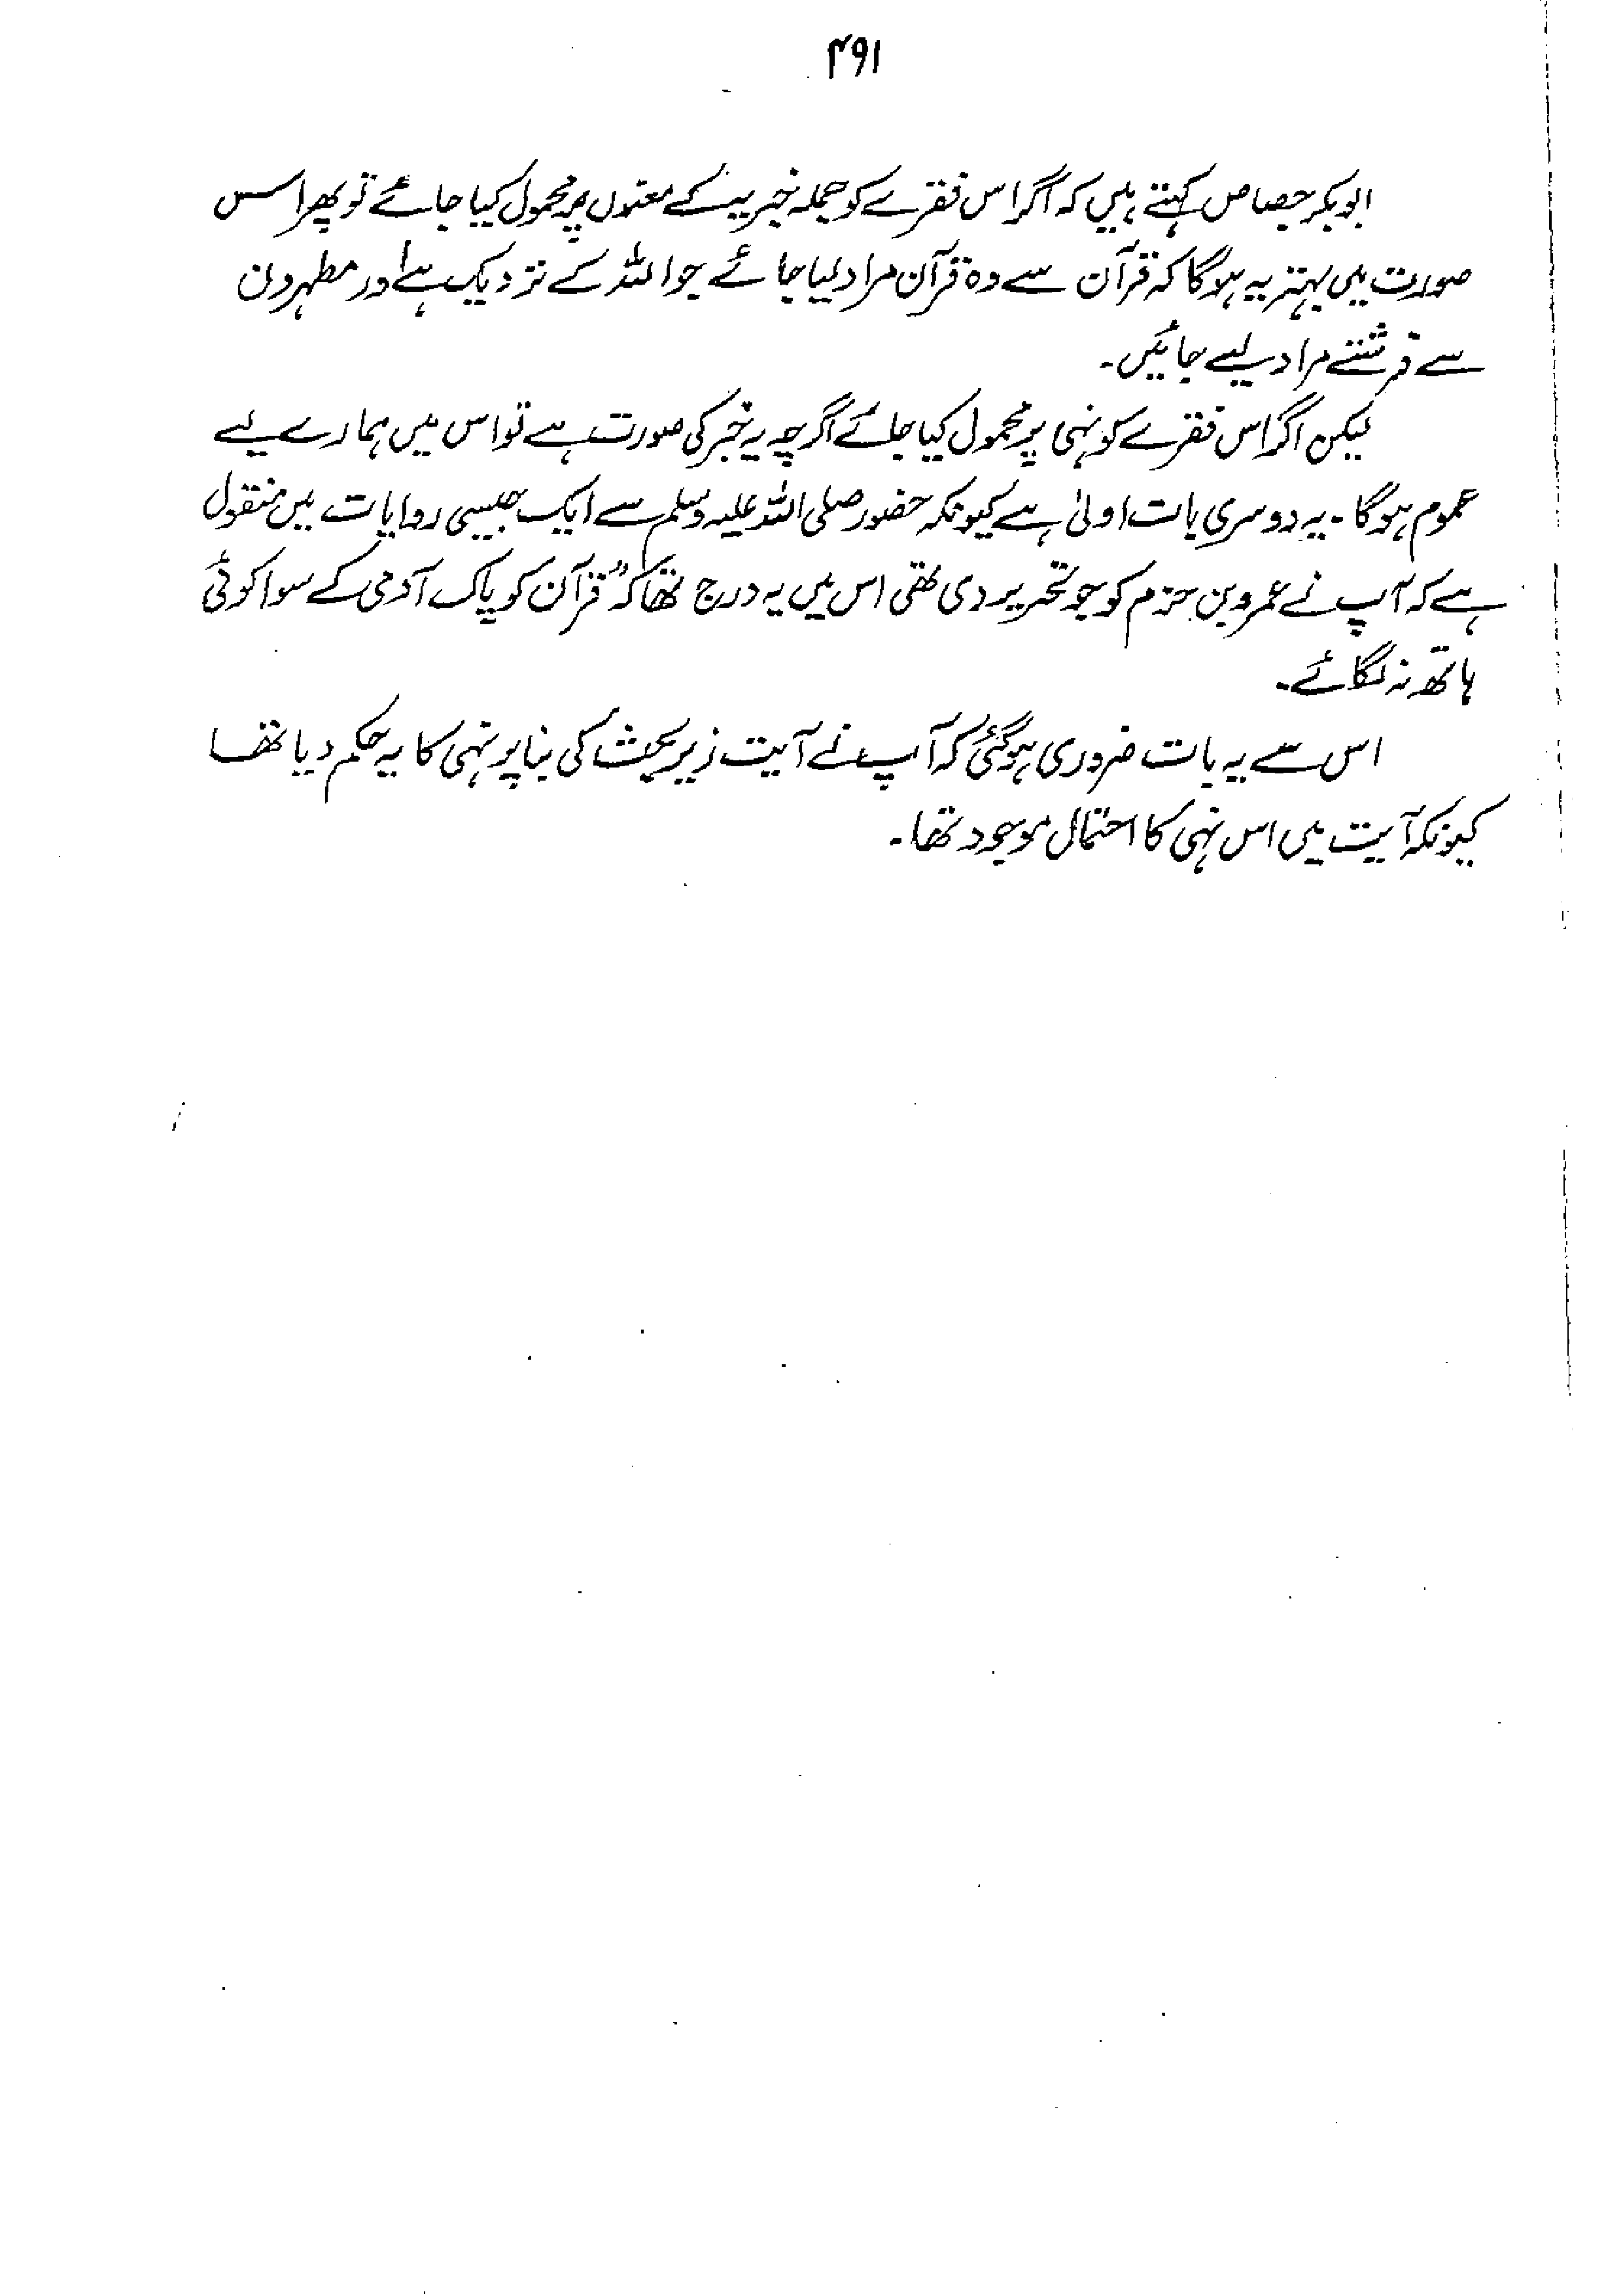 ۴۹۱
ابوبکر جصاص کہتے ہیں کہ اگر اس فقرے کو جملہ خبریہ کے معنوں پر محمول کیا جائے تو پھر اس
صورت میں بہتر یہ ہوگا کہ قرآن سے وہ قرآن مراد لیا جائے جو اللہ کے نزدیک ہے اور مطہرون
سے فرشتے مراد لیے جائیں۔
لیکن اگر اس فقرے کو نہی پر محمول کیا جائے اگرچہ یہ خبر کی صورت ہے تو اس میں ہمارے لیے
عموم ہوگا۔ یہ دوسری بات اولیٰ ہے کیونکہ حضور صلی اللہ علیہ وسلم سے ایک جیسی روایات میں منقول
ہے کہ آپ نے عمرو بن حزم کو جو تحریر دی تھی اس میں یہ درج تھا کہ "قرآن کو پاک آدمی کے سوا کوئی
ہاتھ نہ لگائے۔
اس سے یہ بات ضروری ہوگئی کہ آپ نے آیت زیر بحث کی بنا پر نہی کا یہ حکم دیا تھا
کیونکہ آیت میں اس نہی کا احتمال موجود تھا۔